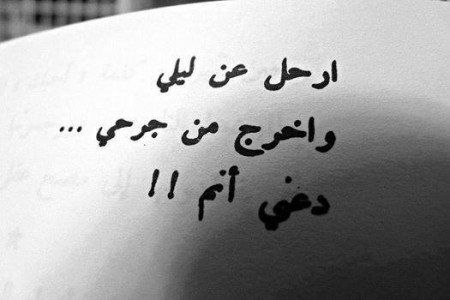 ارحل عن ليلي
واخرج من جرحي ...
دعني أنم !!